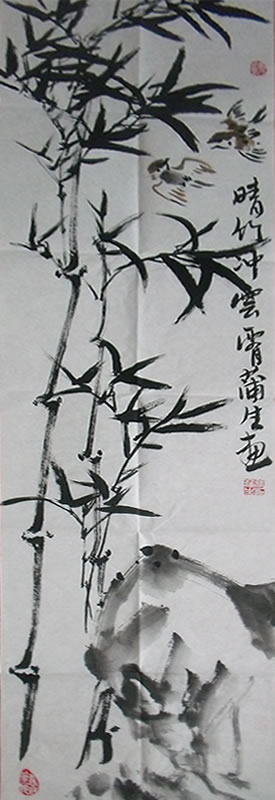 晴竹冲雲霄蒲生画